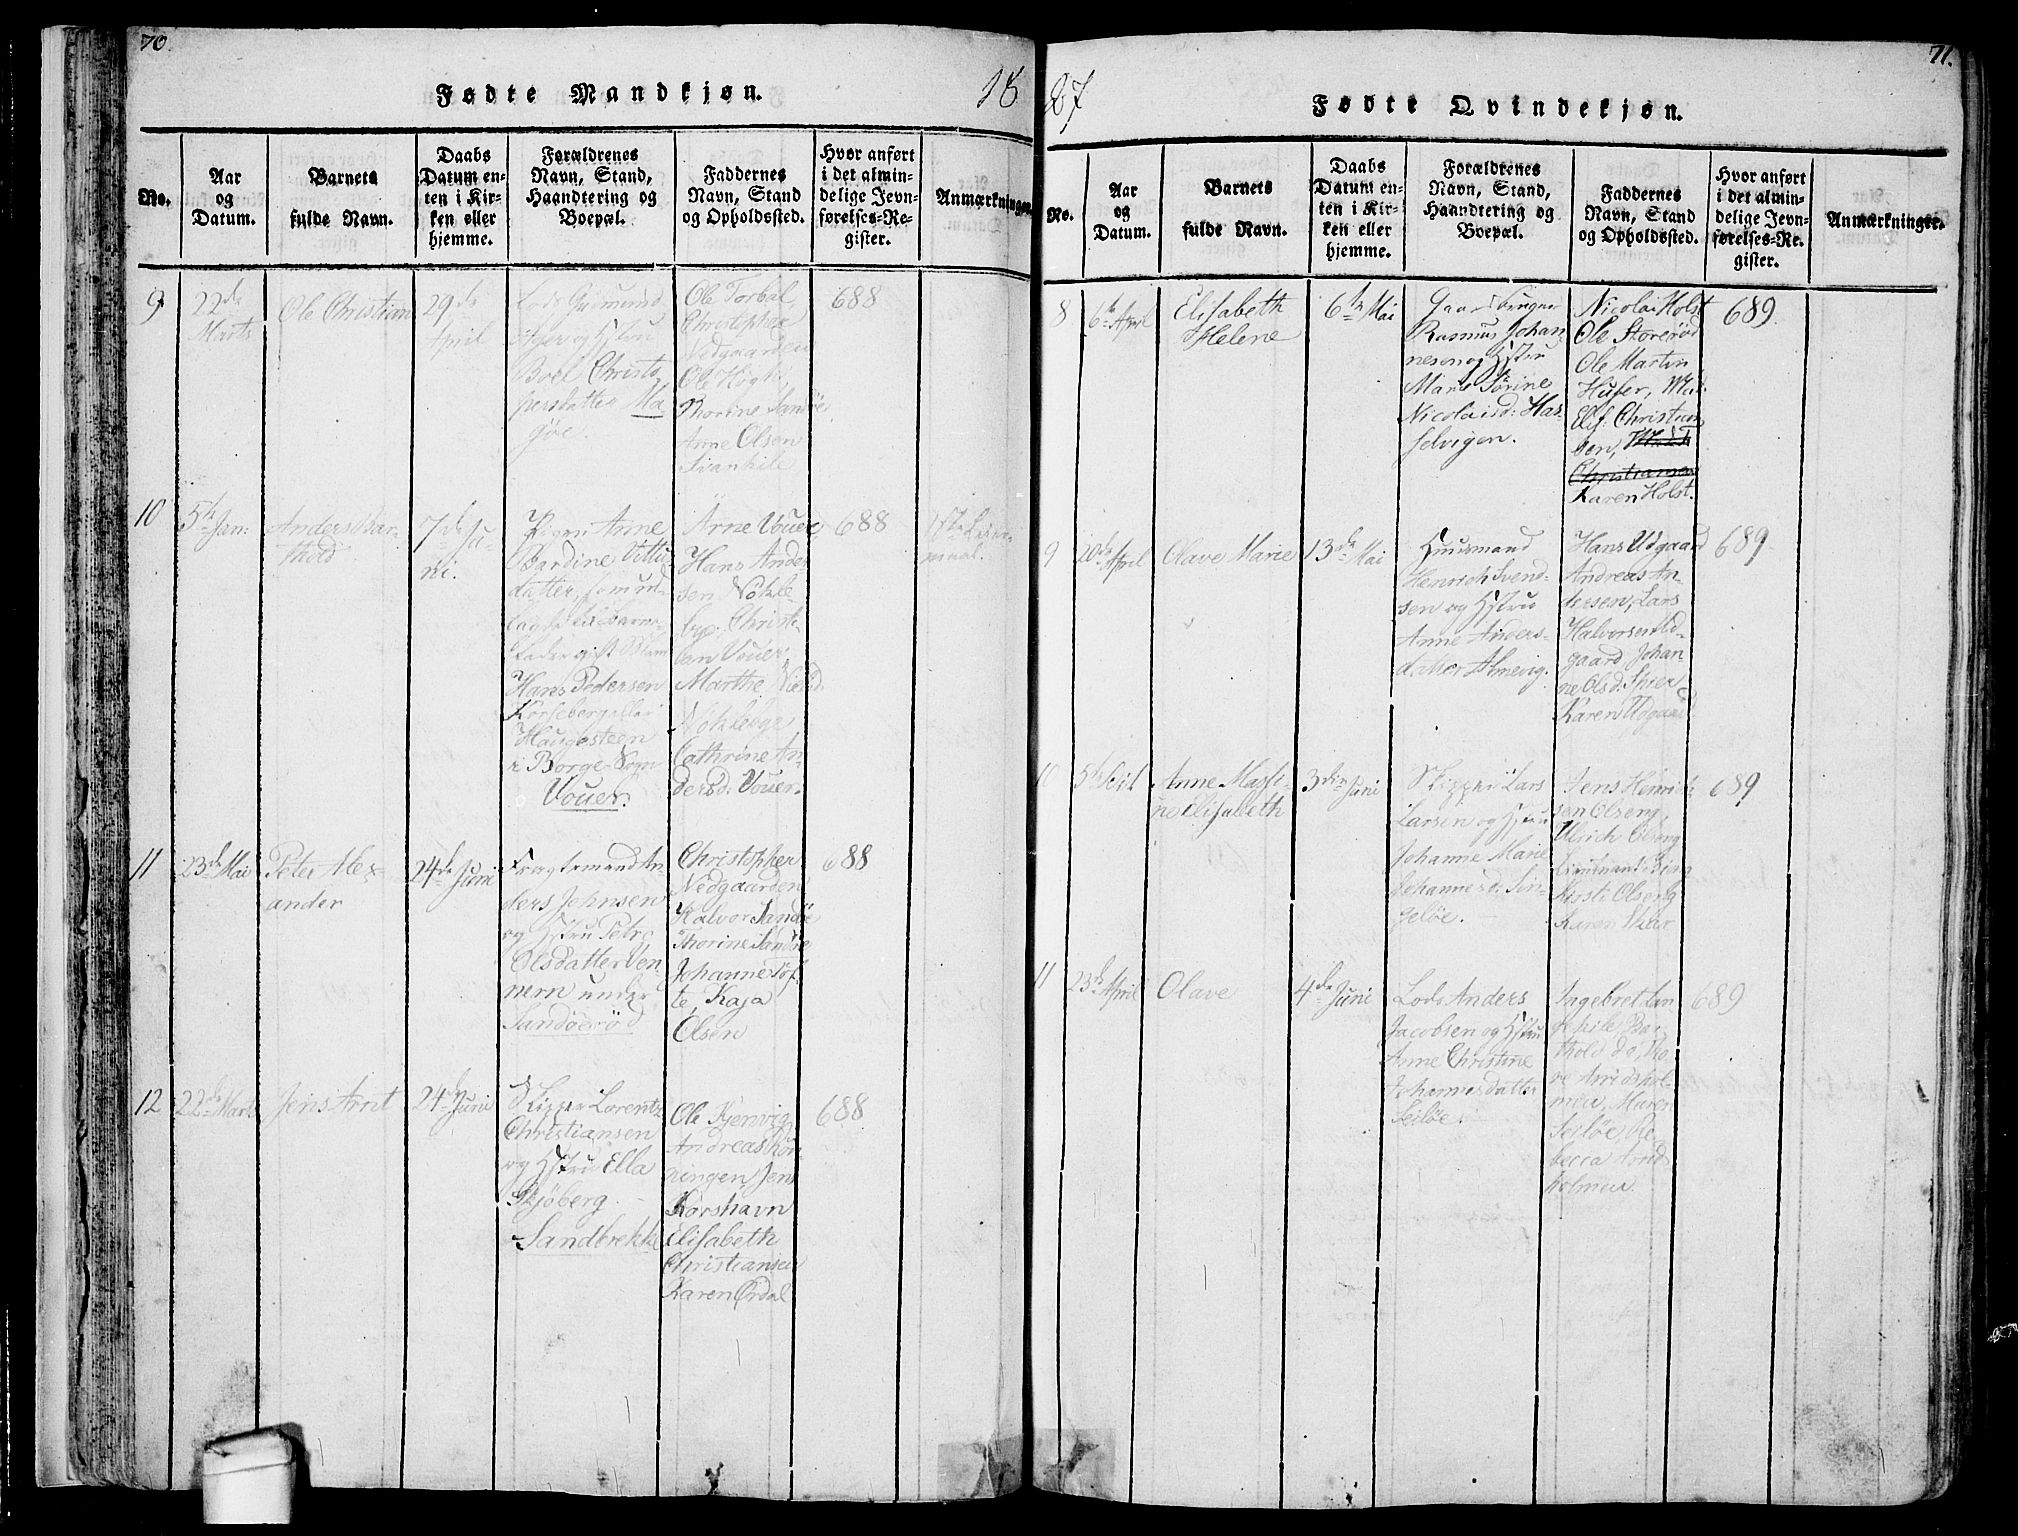 70.
Fødte Mandkjøn.
18
No.
Aar
og
Datum.
Barnets
fulde Navn.
Daabs
Datum en-
ten i Kir-
ken eller
hjemme.
Forældrenes
Navn, Stand,
Haandtering og
Boepæl.
Faddernes
Navn, Stand
og Opholdssted.
Hvor anført
i det almin-
delige Jevn-
førelses-Re-
gister.
Anmærkninger.
9
22de
Marts
Ole Christian
29de
April
Lods Gudmund
og Hstru
Boel Christo
persdatter Ma
göe.
Ole Torbal
Christopher
Nedgaarden
Ole Høgh
Thorine Sandöe
Anne Olsen
Svankile
688
10
5te Jan:
Anders Bar-
thold
7de Ju-
ni.
Pigen Anne
Bardine Vitti
datter, som ud-
lagde til Barne-
fader gift Mand
Hans Pedersen
Korseberg eller
Haugesteen
i Borge-Sogn
Vouer.
Arne Vouer
Hans Ander
sen Nökle
bye, Christi-
an Vouer,
Marthe Nielsd
Nöklebye
Cathrine An
dersd. Vouer.
688
1ste Leier-
maal.
11
23de Mai
Peter Alex-
ander
24de Juni
Fragtemand An-
ders Johnsen
og Hstru Petre
Olsdatter Ven-
nern under
Sandöeröd
Christopher
Nedgaarden
Halvor Sandöe
Thorine Sandöe
Johanne Tof-
te, Kaja
Olsen
688
12
22de Marts
Jens Arnt
24de Juni
Skipper Lorentz
Christiansen
og Hstru Ella
Skjöberg
Sandbrekke
Ole Kjenvig
Andreas Röd-
ningen, Jens
Korshavn
Elisabeth
Christiansen
Karen Ordal
688
71.
27
Fødte Qvindekjøn.
No.
Aar
og
Datum.
Barnets
fulde Navn.
Daabs
Datum en-
ten i Kir-
ken eller
hjemme.
Forældrenes
Navn, Stand,
Haandtering og
Boepæl.
Faddernes
Navn, Stand
og Opholdssted.
Hvor anført
i det almin-
delige Jevn-
førelses-Re-
gister.
Anmærkninger.
8
6te April
Elisabeth
Helene
6te Mai
Gaardbruger
Rasmus Johan
nesen og Hstru
Maria Sörine
Nicolaisd: Has
selvigen.
Nicolai Holst
Ole Storeröd
Ole Martin
Huser,
Elis. Christian
sen,
Christiansen
Karen Holst.
689.
9
20de April
Olave Marie
13de Mai
Huusmand
Henrich Svend-
sen og Hstru
Anne Anders-
datter Almevig.
Hans Udgaard
Andreas An-
dersen, Lars
Halvorsen Ud-
gaard, Johan-
ne Olsd. Spier
Karen Udgaard
689.
10
Anne Massi-
ne Elisabeth
3die Juni
Skipper Lars
Larsen og Hstru
Johanne Marie
Johannesd. Sin-
gelöe.
Jens Henrich
sen Olseng,
Ulrich Olseng
Lieutenant Bing
Kirsti Olseng
Karen
689
11
23de April
Olave
4de Juni
Lods Anders
Jacobsen og Hstru
Anne Christine
Johannesdatter
Seilöe.
Ingebret Lan
gekile, Bar-
thold do, To-
ve Arndshol-
men, Maren
Seilöe, Re-
becca Arnds
holmen.
689